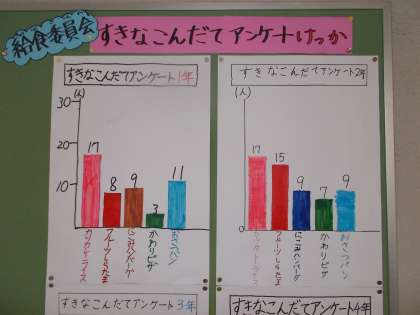 給食委員会
すきなこんだてアンケートけっか
すきなこんだてアンケート1年
(人)
30
20
10
17
8
9
3
11
フルーツしらたま
かわりピザ
おさつパン
すきなこんだてアンケート2年
(人)
0
17
15
9
7
9
フルーツしらたま
にこみハンバーグ
かわりピザ
おさつパン
すきなこんだてアンケート3年
すきなこんだてアンケート4年